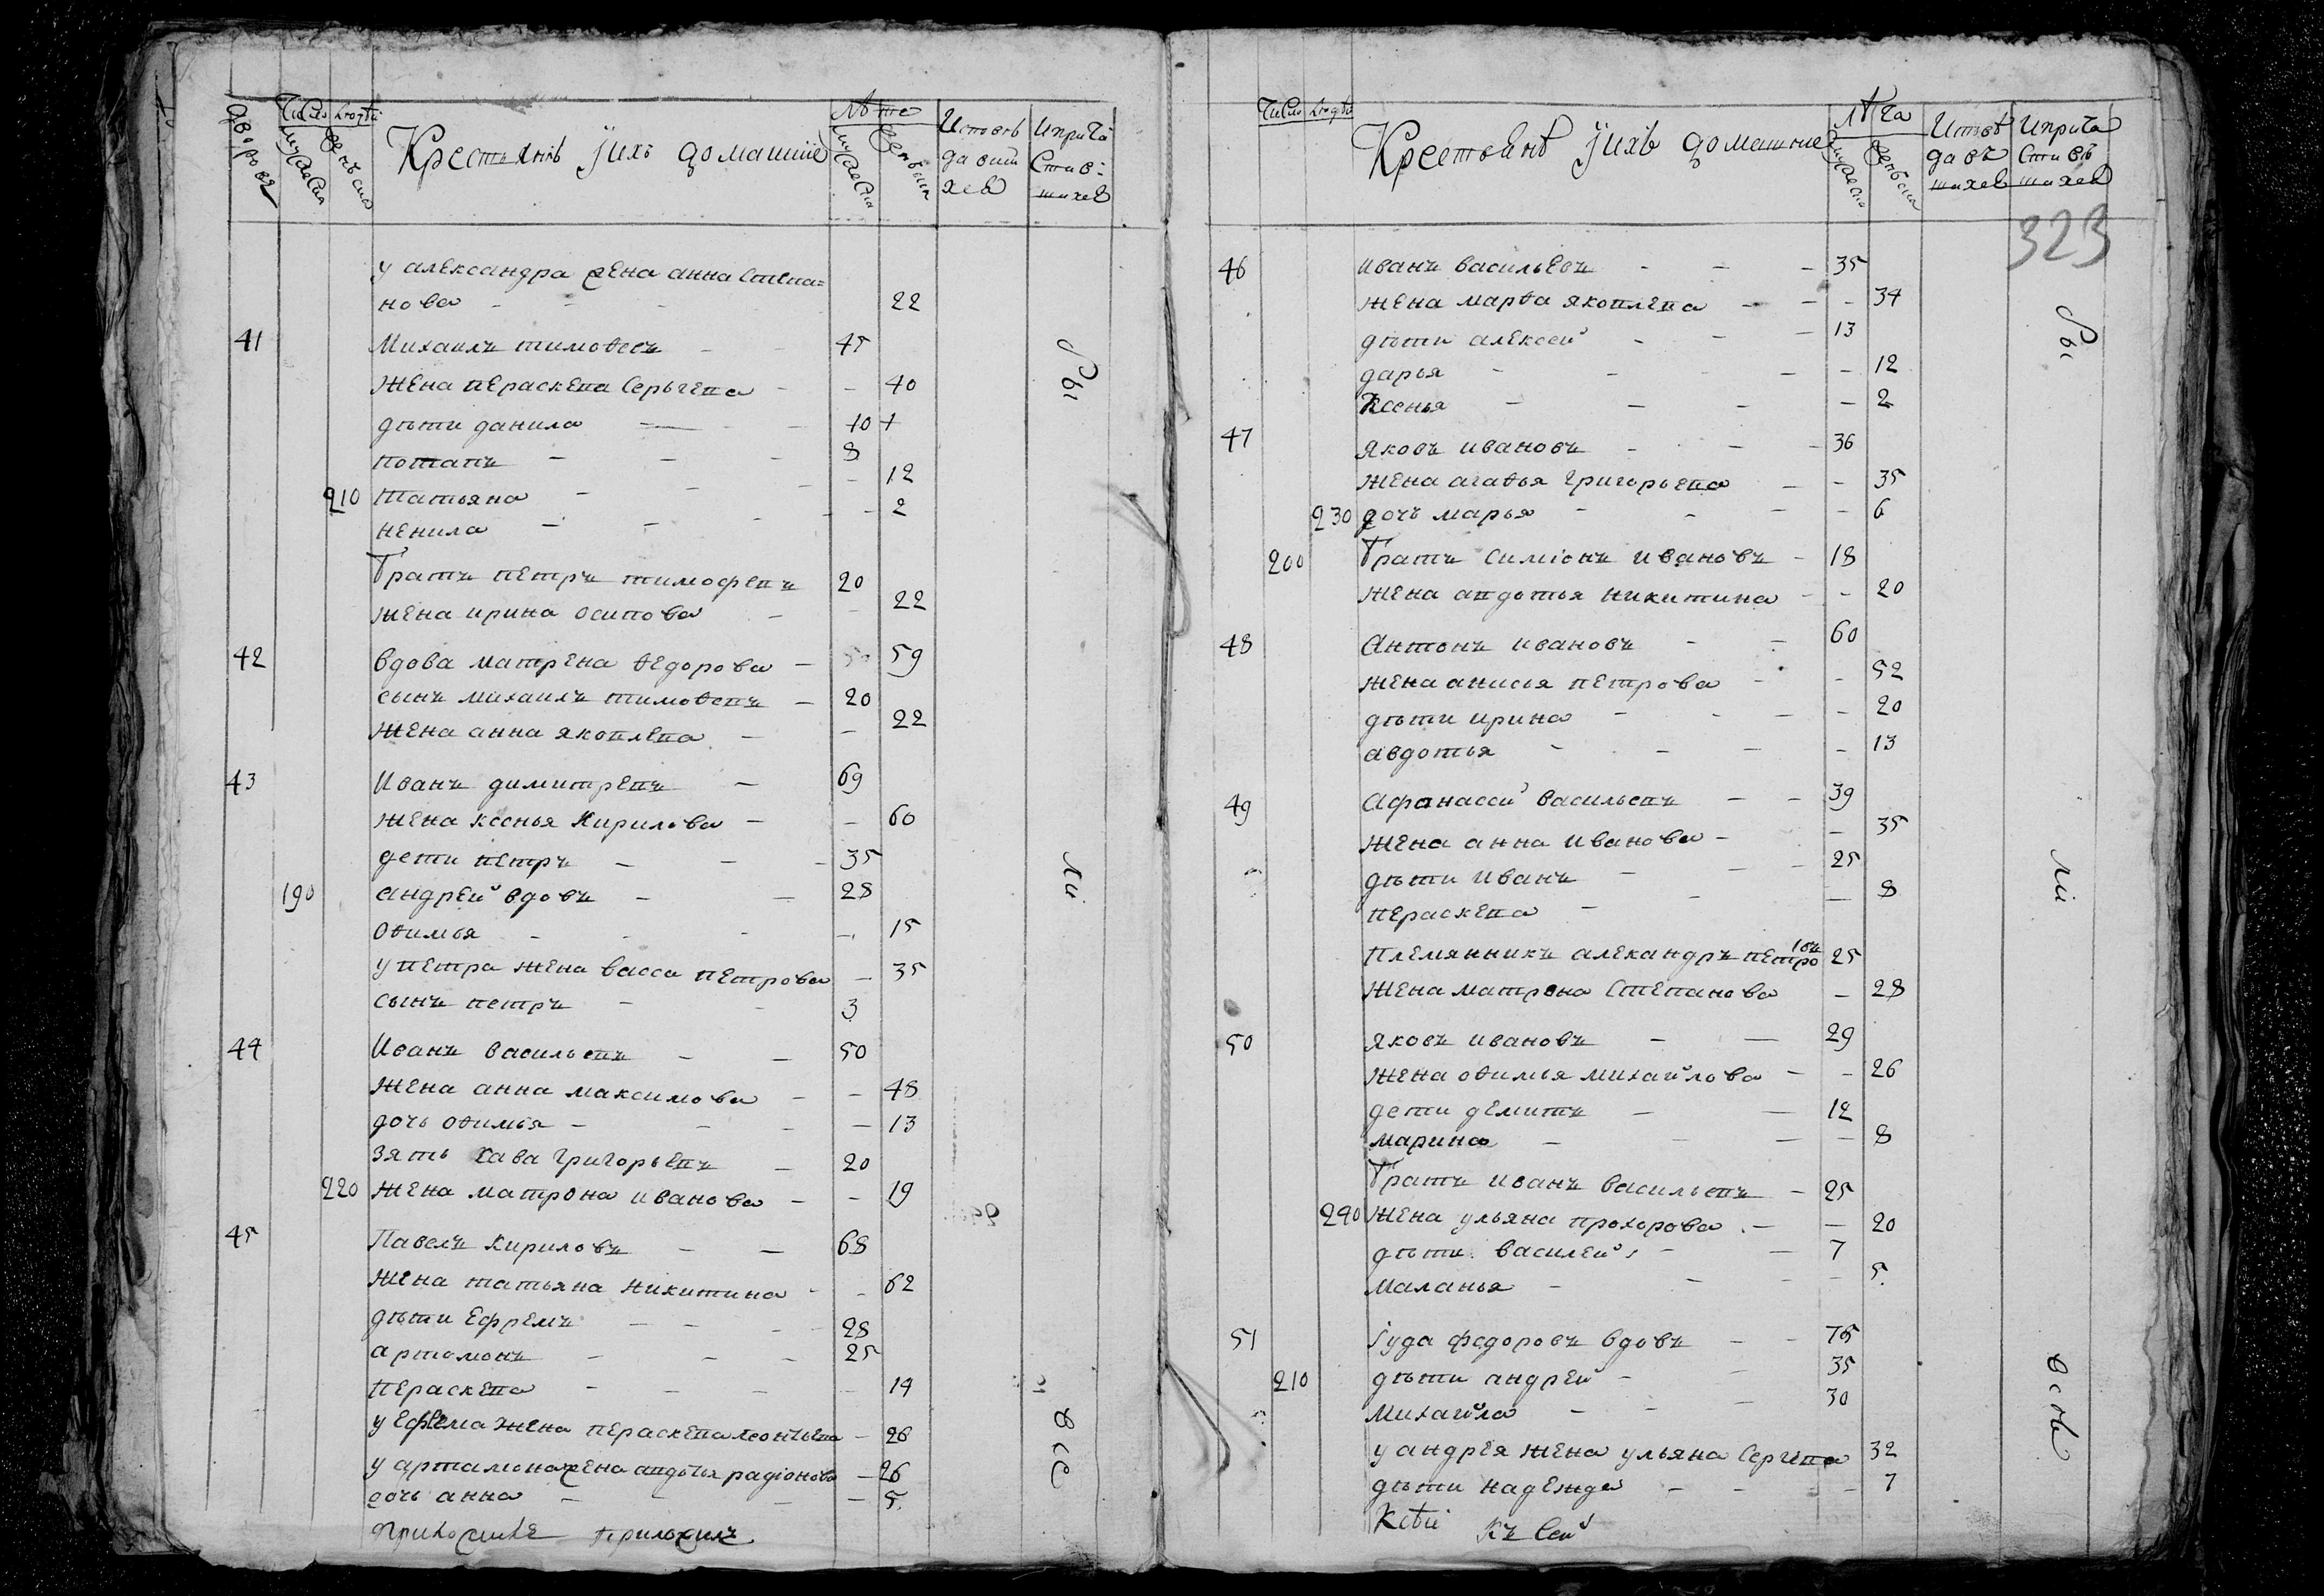 дворовъ
Число людей
мужеска
женъска
Крестьянъ ихъ домашніе
лѣта
мужеска
женъска
Исповѣдавшихся
И причастившихся
у александра жена анна степа=
нова - - 22
41 Михаилъ тимоѳеевъ - 45
жена пераскева Сергѣева - 40
дѣти данила - 10
потапъ - 8
210 татьяна - 12
ненила - 2
Братъ петръ тимофевъ 20
жена ирина осипова - 22
42 вдова матрена ѳедорова - 59
сынъ михаилъ тимоѳевъ - 20
жена анна яковлева - 22
43 Иванъ димитревъ - 69
жена ксенья кирилова - 60
дети петръ - 35
190 андрей вдовъ - 28
Оѳимья - 15
у петра жена васса петрова - 35
сынъ петръ - 3
44 Иванъ васильевъ - 50
жена анна максимова - 48
дочь оѳимья - 13
зять сава григорьевъ - 20
220 жена матрона иванова - 19
45 Павелъ кириловъ - 68
жена татьяна никитина - 62
дѣти Ефремъ - 28
артомонъ - 25
пераскева - 14
у ефрема жена пераскева леонтьева - 26
у артамона жена авдотья радіонова - 26
дочь анна - 5
ры
ли
все
Число людей
Крестьянъ ихъ домашніе
лѣта
мужеска
женъска
Исповѣдавшихся
И причастившихся
323
46 иванъ васильевъ - 35
жена марѳа яковлева - 34
дѣти алексей - 13
дарья - 12
Ксенья - 2
47 яковъ ивановъ - 36
жена агаѳья григорьева - 35
230 дочь марья - 6
200 Братъ симіонъ ивановъ - 18
жена авдотья никитина - 20
48 Антонъ ивановъ - 60
жена анисья петрова - 52
дѣти ирина - 20
авдотья - 13
49 Афонасей васильевъ - 39
жена анна иванова - 35
дѣти иванъ - 25
пераскева - 8
племянникъ алекандръ петровъ 25
жена матрона степанова - 28
50 яковъ ивановъ - 29
жена оѳимья михайлова - 26
дети демитъ - 12
марина - 8
Братъ иванъ васильевъ - 25
240 жена ульяна прохорова - 20
дѣти василей - 7
маланья - 5
51 Іуда федоровъ вдовъ - 75
210 дѣти андрей - 35
михайла - 30
у андрея жена ульяна Сергева 32
дѣти надежда - 7
къ сей
ры
ли